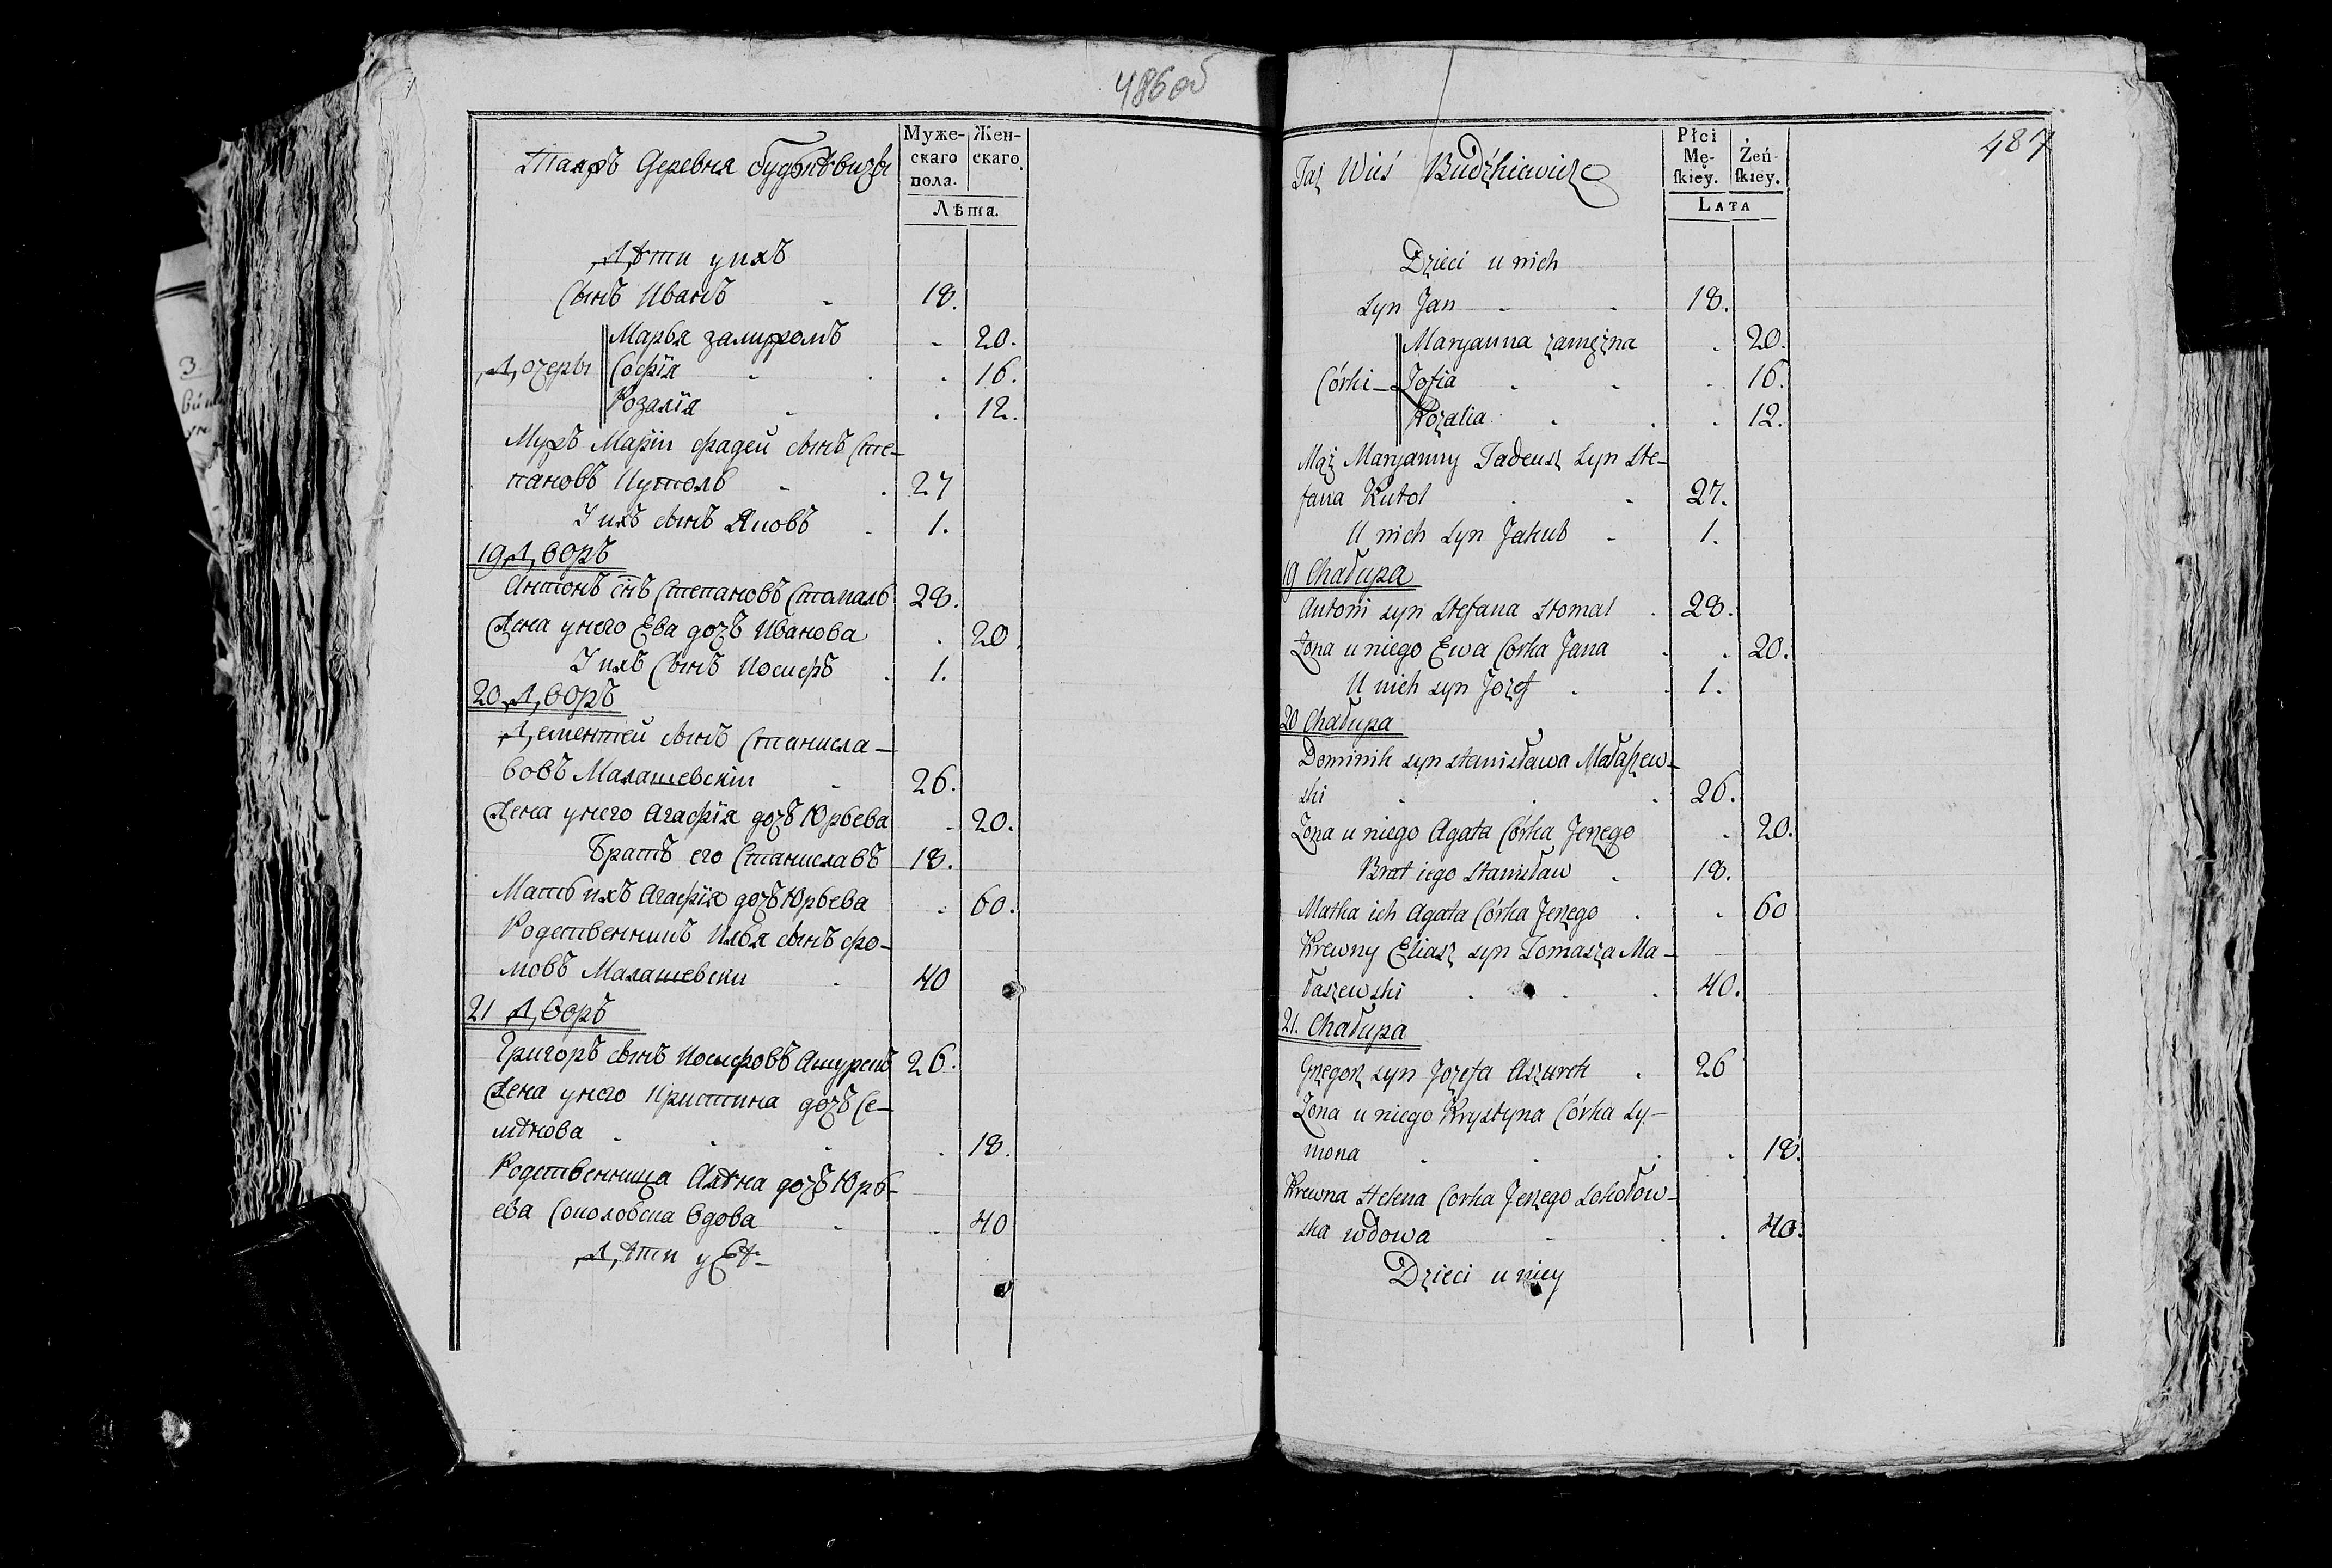 486 об
Таяжъ Деревня Будзкѣвичи
Муже- Жен-
скаго скаго.
пола.
Лѣта.
Дѣти унхъ
Сынъ Иванъ 18.
Марья замужомъ 20.
Дочеры Софїя 16.
Розалїя 12.
Мужъ Марїи Фадей сынъ Сте-
пановъ Кутоль 27
У ихъ сынъ Яковъ 1.
19 Дворъ
Антонъ снъ Степановъ Стомаль 28.
Жена унего Ева дочъ Иванова 20.
У ихъ Сынъ Иосифъ 1.
20 Дворъ
Дементей сынъ Станисла-
вовъ Малашевскiи 26.
Жена унего Агафїя дочъ Юрьева 20.
Братъ его Станиславъ 18.
Мать ихъ Агафїя дочъ Юрьева 60.
Родственникъ Илья сынъ Фо-
мовъ Малашевски 40
21 Дворъ
Григоръ сынъ Иосифовъ Ашурекъ 26.
Жена унего Кристина дочъ Се-
мѣнова 18.
Родственница Алѣна дочъ Юрь-
ева Соколовска вдова 40
Дѣти у Еѣ
487
Taż Wieś Budźkiewicze
Płci
Mę- Żeń-
skiey. skiey.
Lata
Dzieci u nich
Syn Jan 18.
Maryanna zamężna 20.
Córki Zofia 16.
Rozalia 12.
Mąż Maryanny Tadeusz Syn Ste-
fana Kutol 27.
U nich Syn Jakub 1.
19 Chałupa
Antoni syn Stefana Stomal 28.
Zona u niego Ewa Corka Jana 20.
U nich syn Jozef 1.
20 Chałupa
Dominik syn Stanisława Małaszew-
ski 26.
Zona u niego Agata Córka Jerzego 20.
Brat iego Stanisław 18.
Matka ich Agata Córka Jerzego 60
Krewny Eliasz syn Tomasza Ma-
łaszewski 40.
21. Chałupa
Grzegorz syn Jozefa Aszurek 26
Zona u niego Krystyna Córka Sy-
mona 18.
Krewna Helena Corka Jerzego Sokołow-
ska wdowa 40.
Dzieci u niey